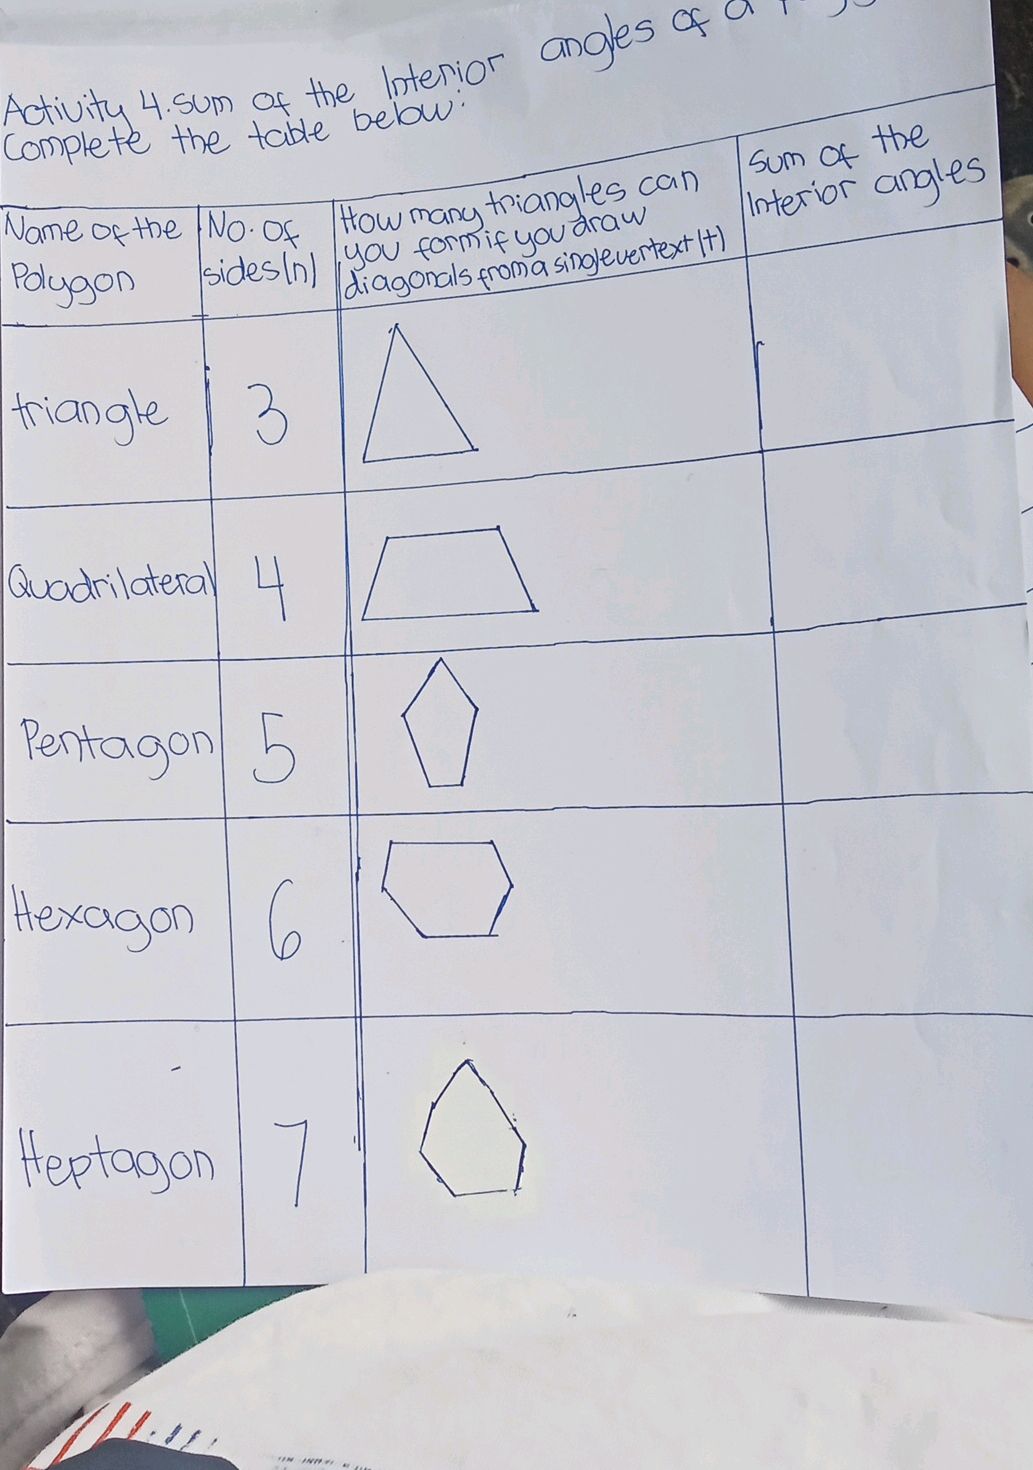 Activity 4. sum of the Interior angles of a
Complete the table below:
Name of the
Polygon
No. of
sides(n)
How many triangles can
you form if you draw
diagonals from a single vertext (t)
Sum of the
Interior angles
triangle
3
Quadrilateral
4
Pentagon
5
Hexagon
6
Heptagon
7